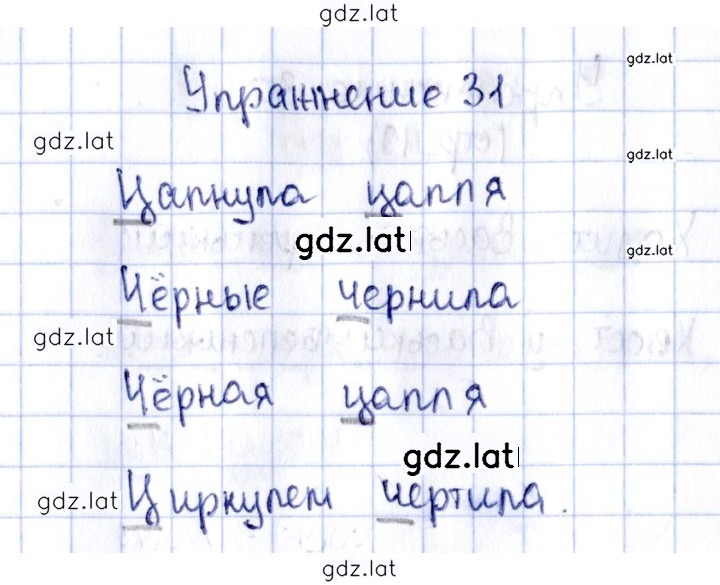 gdz.lat
gdz.lat
Упражнение 31
gdz.lat
gdz.lat
Цапнула цапля
gdz.lat
gdz.lat
Чёрные чернила
gdz.lat
Чёрная цапля
gdz.lat
gdz.lat
Циркулем чертила.
gdz.lat